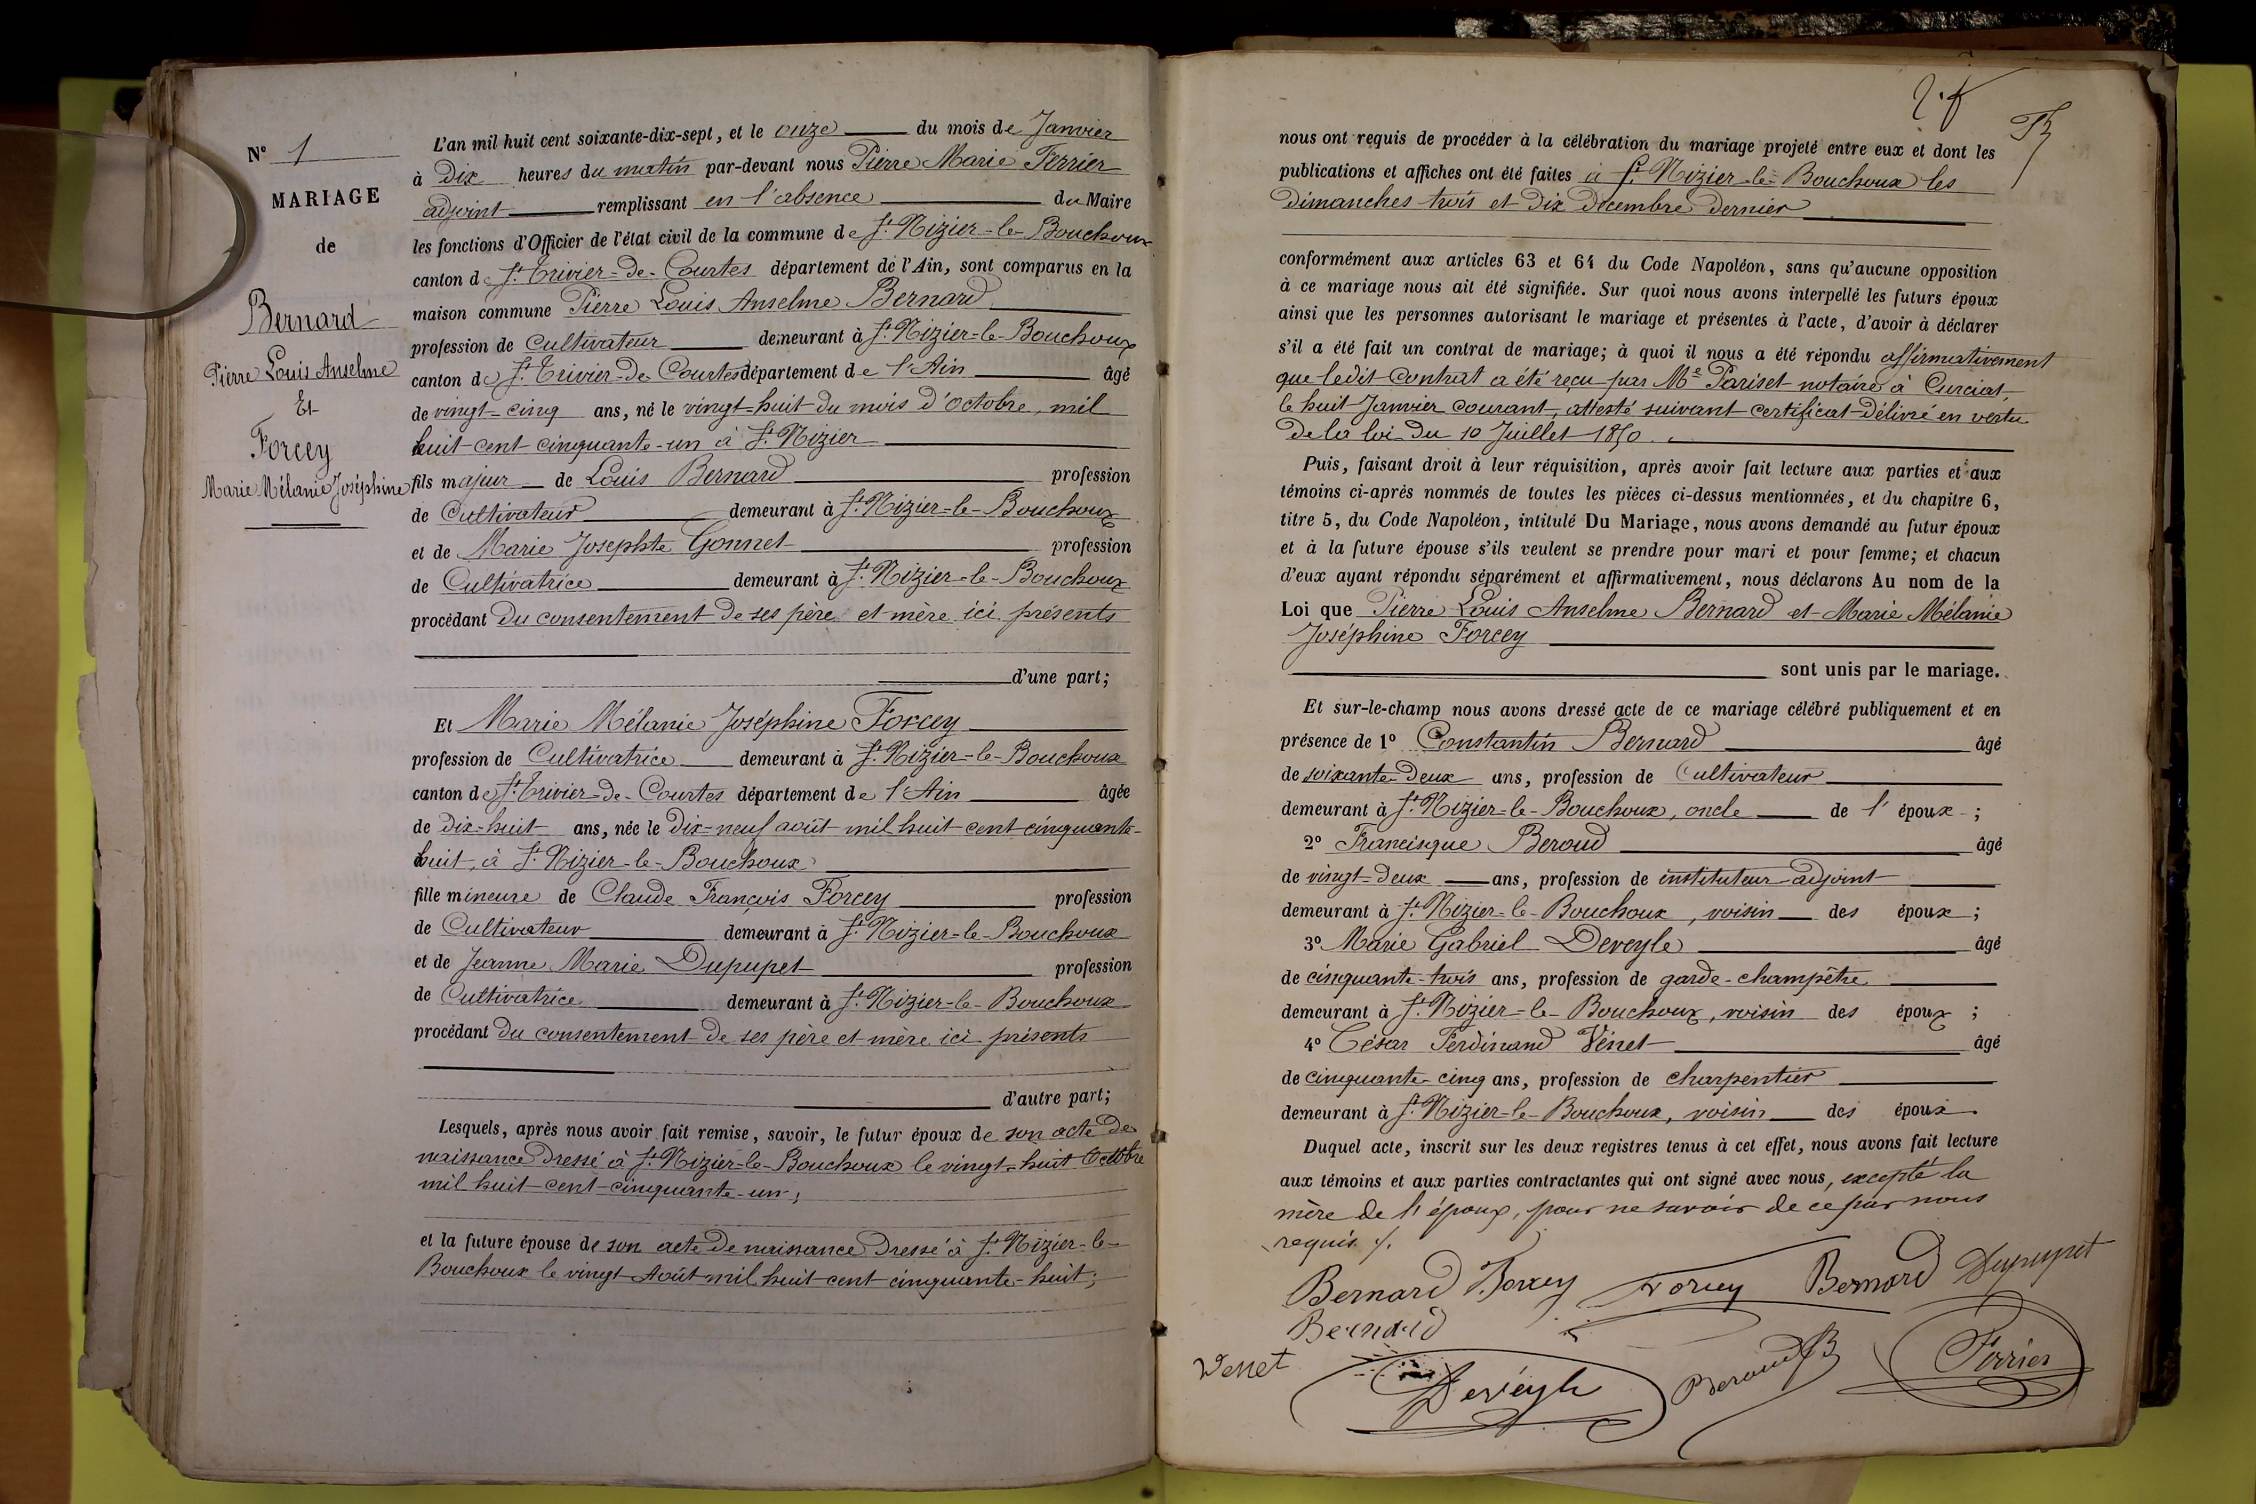 N° 1
MARIAGE
de
Bernard
Pierre Louis Anselme
Et
Forcey
Marie Mélanie Joséphine
L'an mil huit cent soixante-dix-sept, et le onze du mois de Janvier
à Dix heures du matin par-devant nous Pierre Marie Ferrier
adjoint remplissant en l'absence du Maire
les fonctions d'Officier de l'état civil de la commune de St. Nizier-le-Bouchoux
canton de St. Trivier-de-Courtes département de l'Ain, sont comparus en la
maison commune Pierre Louis Anselme Bernard
profession de Cultivateur demeurant à St. Nizier-le-Bouchoux
canton de St. Trivier-de-Courtes département de l'Ain âgé
de vingt-cinq ans, né le vingt-huit du mois d'octobre, mil
huit-cent cinquante-un à St. Nizier
fils majeur de Louis Bernard profession
de Cultivateur demeurant à St. Nizier-le-Bouchoux
et de Marie Josephte Gonnet profession
de Cultivatrice demeurant à St. Nizier-le-Bouchoux
procédant du consentement de ses père et mère ici présents
d'une part;
Et Marie Mélanie Joséphine Forcey
profession de Cultivatrice demeurant à St. Nizier-le-Bouchoux
canton de St. Trivier-de-Courtes département de l'Ain âgée
de dix-huit ans, née le dix-neuf août mil huit-cent cinquante-
huit, à St. Nizier-le-Bouchoux
fille mineure de Claude François Forcey profession
de Cultivateur demeurant à St. Nizier-le-Bouchoux
et de Jeanne Marie Dupupet profession
de Cultivatrice demeurant à St. Nizier-le-Bouchoux
procédant du consentement de ses père et mère ici présents
d'autre part;
Lesquels, après nous avoir fait remise, savoir, le futur époux de son acte de
naissance dressé à St. Nizier-le-Bouchoux le vingt-huit Octobre
mil huit-cent-cinquante-un;
et la future épouse de son acte de naissance dressé à St. Nizier-le-
Bouchoux le vingt Août mil huit-cent cinquante-huit;
nous ont requis de procéder à la célébration du mariage projeté entre eux et dont les
publications et affiches ont été faites à St. Nizier-le-Bouchoux les
dimanches trois et dix décembre dernier
conformément aux articles 63 et 64 du Code Napoléon, sans qu'aucune opposition
à ce mariage nous ait été signifiée. Sur quoi nous avons interpellé les futurs époux
ainsi que les personnes autorisant le mariage et présentes à l'acte, d'avoir à déclarer
s'il a été fait un contrat de mariage; à quoi il nous a été répondu affirmativement
que ledit Contrat a été reçu par Me Pariset notaire à Curciat,
le huit Janvier courant, attesté suivant certificat délivré en vertu
de la loi du 10 Juillet 1850.
Puis, faisant droit à leur réquisition, après avoir fait lecture aux parties et aux
témoins ci-après nommés de toutes les pièces ci-dessus mentionnées, et du chapitre 6,
titre 5, du Code Napoléon, intitulé Du Mariage, nous avons demandé au futur époux
et à la future épouse s'ils veulent se prendre pour mari et pour femme; et chacun
d'eux ayant répondu séparément et affirmativement, nous déclarons Au nom de la
Loi que Pierre Louis Anselme Bernard et Marie Mélanie
Joséphine Forcey
sont unis par le mariage.
Et sur-le-champ nous avons dressé acte de ce mariage célébré publiquement et en
présence de 1° Constantin Bernard âgé
de soixante-deux ans, profession de Cultivateur
demeurant à St. Nizier-le-Bouchoux, oncle de l'époux;
2° Francisque Beroud âgé
de vingt-deux ans, profession de instituteur-adjoint
demeurant à St. Nizier-le-Bouchoux, voisin des époux;
3° Marie Gabriel Deveyle âgé
de cinquante-trois ans, profession de garde-champêtre
demeurant à St. Nizier-le-Bouchoux, voisin des époux;
4° César Ferdinand Vénet âgé
de cinquante-cinq ans, profession de charpentier
demeurant à St. Nizier-le-Bouchoux, voisin des époux
Duquel acte, inscrit sur les deux registres tenus à cet effet, nous avons fait lecture
aux témoins et aux parties contractantes qui ont signé avec nous, excepté la
mère de l'époux, pour ne savoir de ce par nous
requis ./.
Bernard Forcey Forcey Bernard Dupupet
Bernard
Venet Devéyle Beroud Ferrier